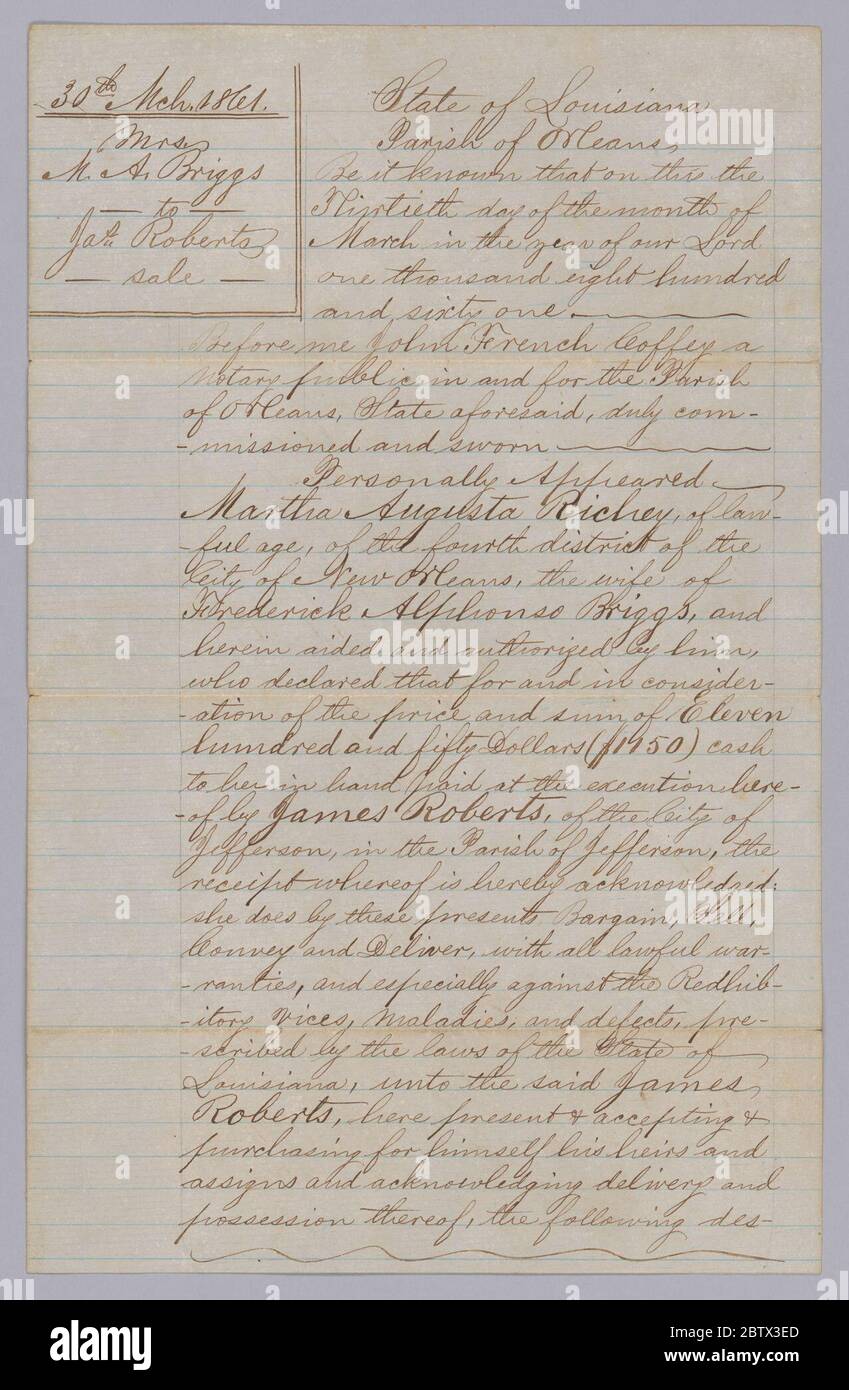 30th Mch. 1861.
Mrs
M. A. Briggs
— to —
Jas Roberts
— sale —
State of Louisiana
Parish of Orleans,
Be it known that on this the
Thirtieth day of the month of
March in the year of our Lord
one thousand eight hundred
and sixty one
Before me John French Coffey a
Notary public in and for the Parish
of Orleans, State aforesaid, duly com-
-missioned and sworn
Personally Appeared
Martha Augusta Richey, of law-
-ful age, of the fourth district of the
City of New Orleans, the wife of
Frederick Alphonso Briggs, and
herein aided and authorized by him,
who declared that for and in consider-
-ation of the price and sum of Eleven
hundred and fifty Dollars ($1150) cash
to her in hand paid at the execution here-
-of by James Roberts, of the City of
Jefferson, in the Parish of Jefferson, the
receipt whereof is hereby acknowledged:
she does by these presents Bargain, Sell,
Convey and Deliver, with all lawful war-
-ranties, and especially against the Redhib-
-itory Vices, Maladies, and defects, pre-
-scribed by the laws of the State of
Louisiana, unto the said James
Roberts, here present & accepting &
purchasing for himself his heirs and
assigns and acknowledging delivery and
possession thereof, the following des-
alamy
Image ID: 2BTX3ED
www.alamy.com